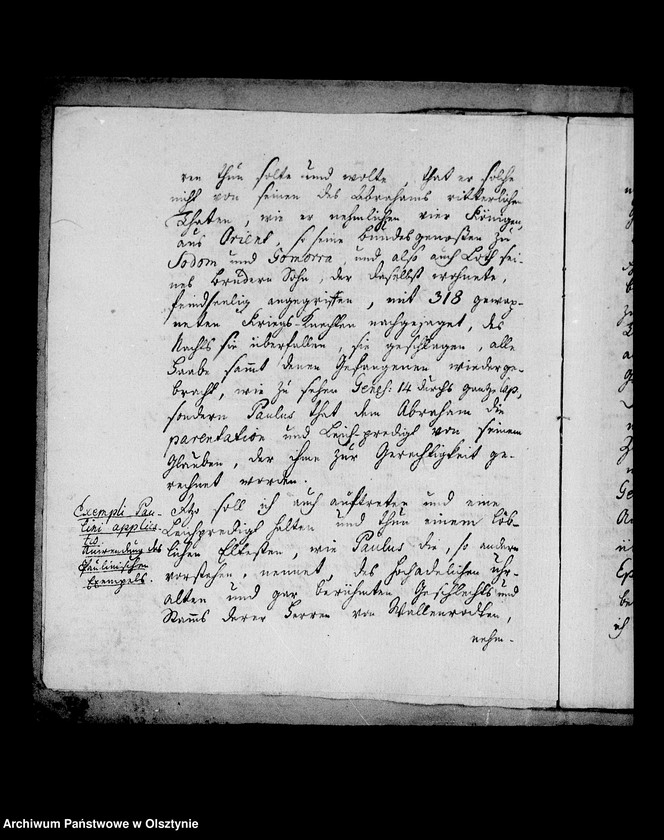 ren thun solte und wolte, that er solche
nicht von seinen des Abrahams ritterlichen
Thaten, wie er nehmlichen vier Königen,
aus Orient, so seine bundesgenoßen zu
Sodom und Gomorra, und also auch Loth sei-
nes brudern Sohn, der daselbst wohnete,
feindseelig angegriffen, mit 318 gewap-
neten Kriegs-Knechten nachgejaget, des
Nachts sie überfallen, sie geschlagen, alle
Haabe samt denen Gefangenen wiederge-
bracht, wie zu sehen Genes: 14 durchs gantze Cap,
sondern Paulus that dem Abraham die
parentation und Leich-predigt von seinem
Glauben, der ihme zur Gerechtigkeit ge-
rechnet worden.
Exempli Pau-
lini applica-
tio
Anwendung des
Paulinischen
Exempels.
Itzo soll ich auch auftreten und eine
Leichpredigt halten und thun einem löb-
lichen Eltesten, wie Paulus die, so andern
vorstehen, nennet, des hochadelichen uhr-
alten und gar berühmten Geschlechts und
Stams derer Herren von Wallenrodten,
nehm-
Archiwum Państwowe w Olsztynie